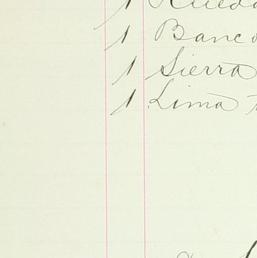 1 Rueda
1 Banc
1 Sierra
1 Lima